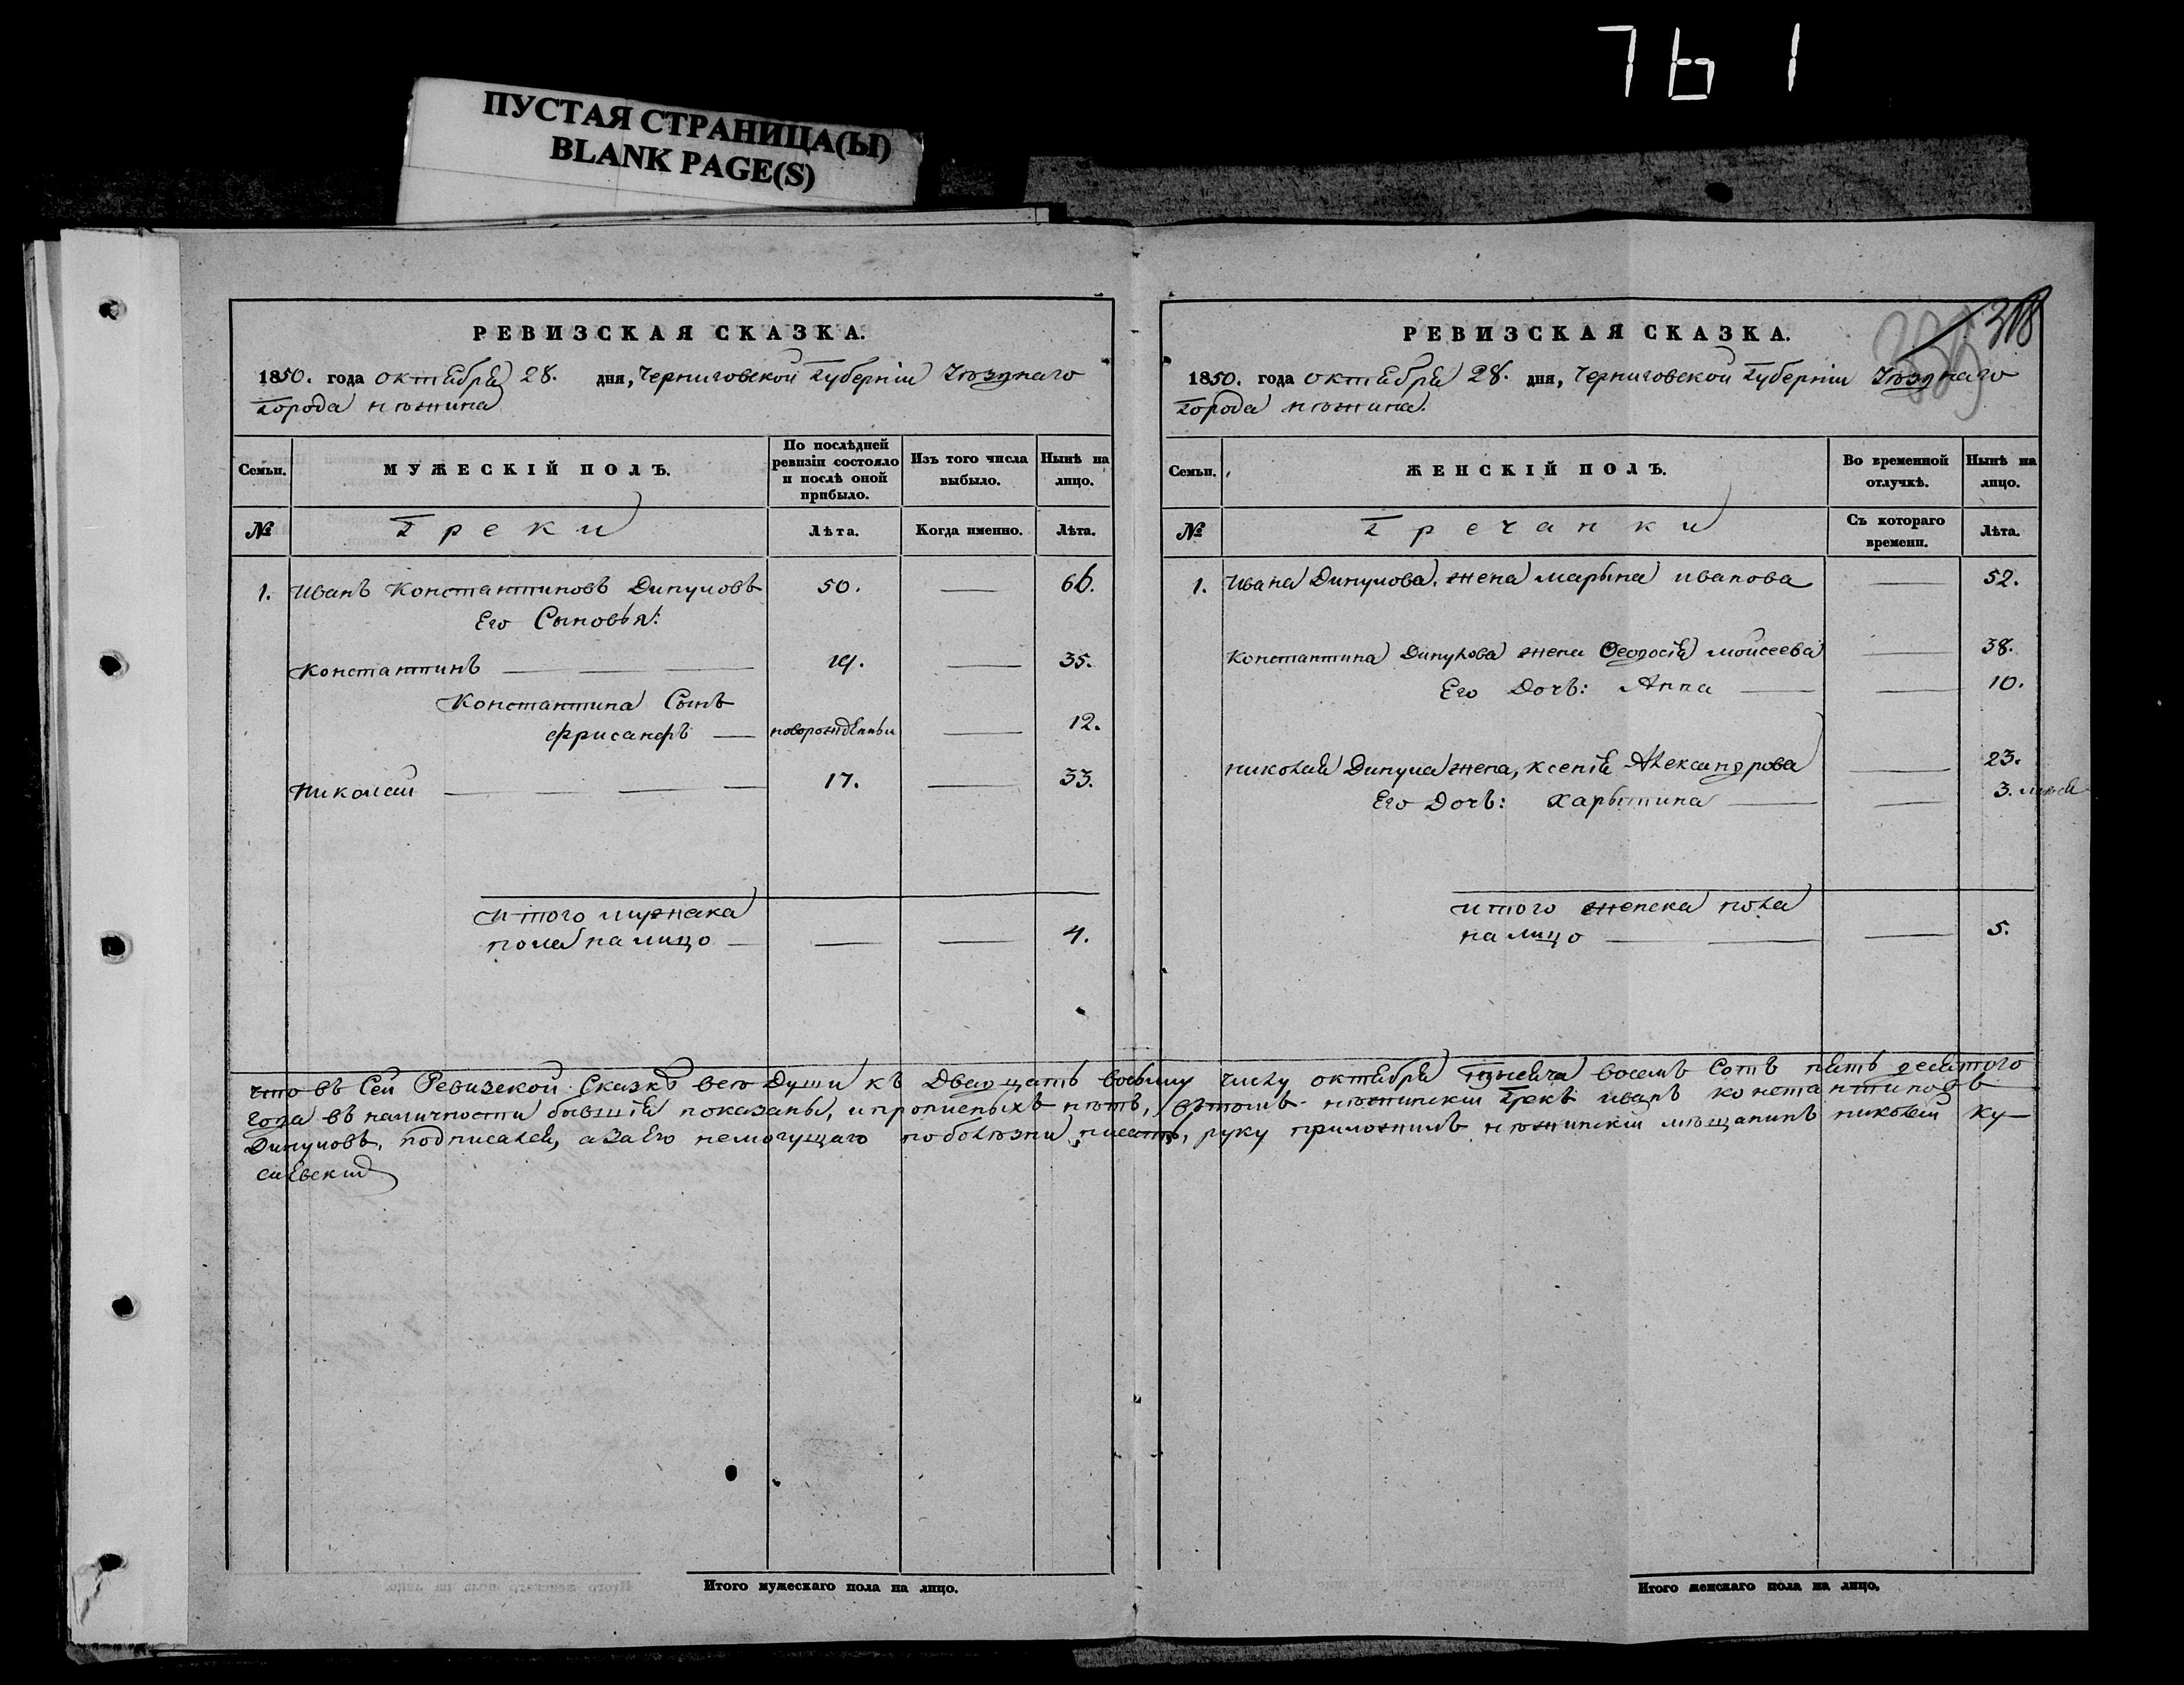 761
ПУСТАЯ СТРАНИЦА(Ы)
BLANK PAGE(S)
РЕВИЗСКАЯ СКАЗКА.
1850. года октября 28. дня, Черниговской Губерніи Уѣзднаго
Города нѣжина
Семьи.
МУЖЕСКІЙ ПОЛЪ.
По послѣдней ревизіи состояло и послѣ оной прибыло.
Изъ того числа выбыло.
Нынѣ на лицо.
№
Греки
Лѣта.
Когда именно.
Лѣта.
1. Иванъ Константиновъ 50. — 66.
Его Сыновья:
Константинъ — 19. — 35.
Константина Сынъ
Фрисанфъ — новорожденный — 12.
Николай — 17. — 33.
Итого мужска
пола на лицо — — — 4.
РЕВИЗСКАЯ СКАЗКА.
318
1850. года октября 28. дня, Черниговской Губерніи Уѣзднаго
Города нѣжина.
Семьи.
ЖЕНСКІЙ ПОЛЪ.
Во временной отлучкѣ.
Нынѣ на лицо.
№
Гречанки
Съ котораго времени.
Лѣта.
1. Ивана жена марьна иванова — 52.
Константина жена Феодосія моисеева — 38.
Его Дочь: Анна — — 10.
николая жена, ксенія Александрова — 23.
Его Дочь: Харытина — — 3.
итого женска пола
на лицо — — 5.
что въ Сей Ревизской Сказкѣ всѣ Души къ Двадцать восьму числу октября тысяча восемь Сотъ пять десятого
года въ наличности бывшія показаны, и прописныхъ нѣтъ, въ томъ нѣжинскій Грекъ иванъ константиновъ
подписался, а за Его немогущаго по болѣзни писать, руку приложилъ нѣжинскій мѣщанинъ николай
Итого мужескаго пола на лицо.
Итого женскаго пола на лицо.